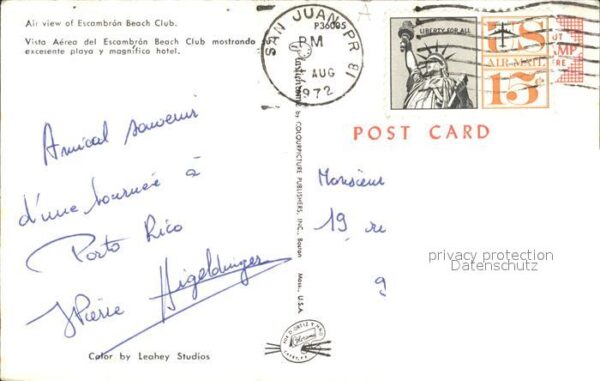 Air view of Escambrón Beach Club.
Vista Aérea del Escambrón Beach Club mostrando
excelente playa y magnífico hotel.
SAN JUAN, PR
P36005
PM
AUG
1972
LIBERTY FOR ALL
US
AIR MAIL
15¢
POST CARD
Plastichrome
by COLOURPICTURE PUBLISHERS, INC., Boston Mass., U.S.A.
Amical souvenir
d'une tournée à
Porto Rico
Pierre
Monsieur
19 re
9
privacy protection
Datenschutz
Color by Leahey Studios